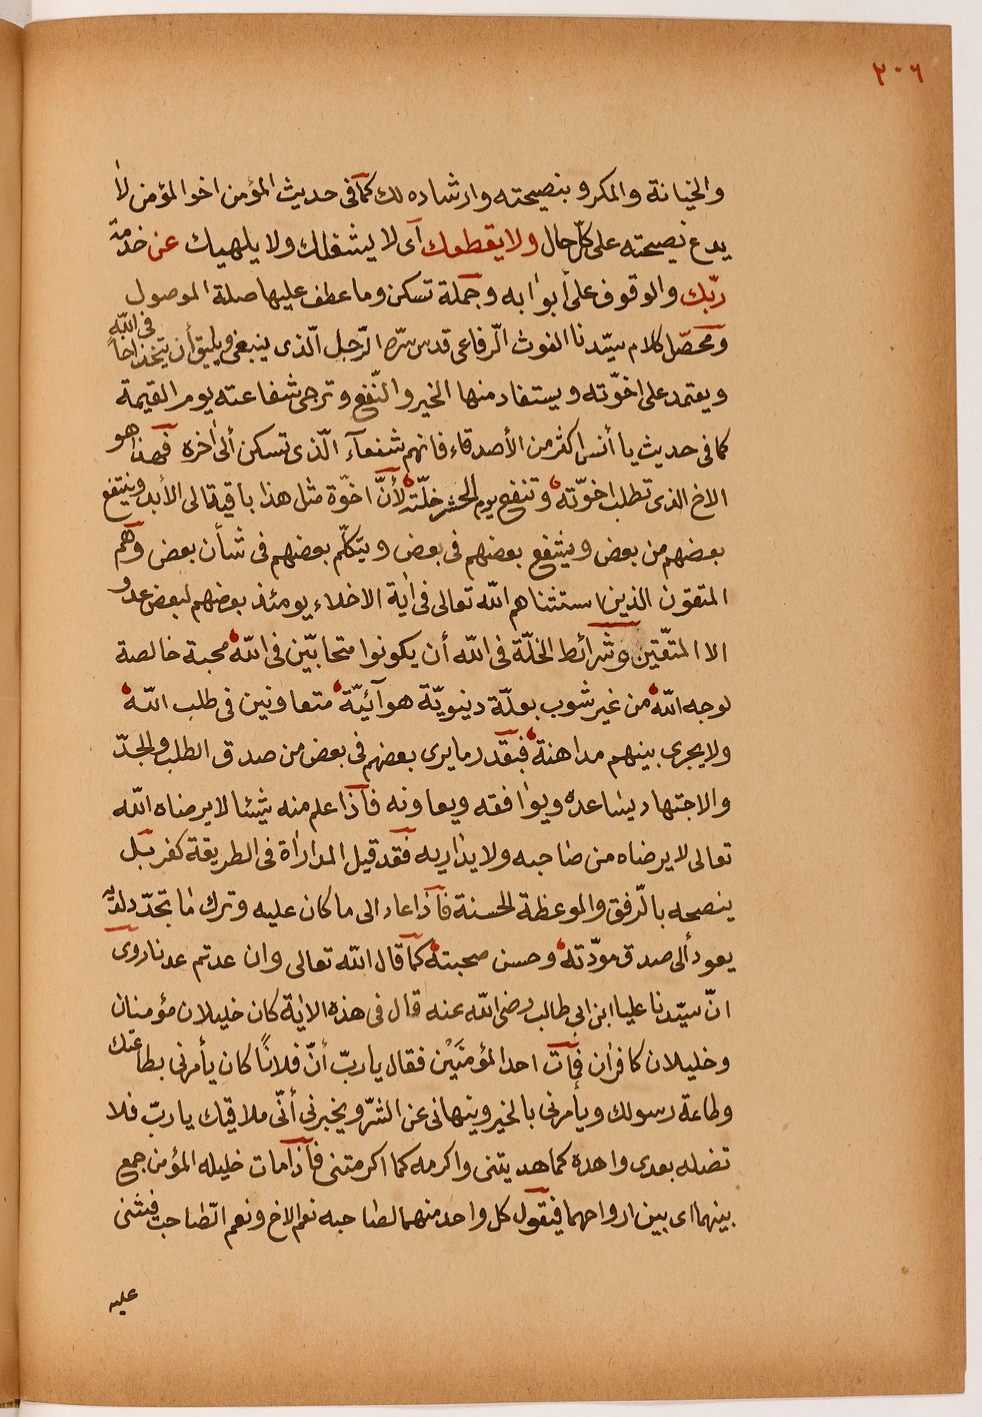 ٢٠٦
والخيانة والمكر وبنصيحته وارشاده لك كما فى حديث المؤمن اخوا لمؤمن لا
يدع نصيحته على كلّ حال ولا يقطعك اى لا يشغلك ولا يلهيك عن خدمة
ربّك والوقوف على أبوابه وجملة تسكن وما عطف عليها صلة الموصول
ومحصّل كلام سيّدنا الغوث الرّفاعى قدس سرّه الرّجل الّذى ينبغى ويليق أن يتّخذ اخاً فى اللّه
ويعتمد على اخوّته ويستفاد منها الخير والنّفع وترجى شفاعته يوم القيمة
كما فى حديث يا أنس اكثر من الأصدقاء فانهم شفعآء الّذى تسكن ألى اخره فهذا هو
الاخ الذى تطلب اخوّته وتنفع يوم الحشر خلّته لأنّ اخوّة مثل هذا باقية الى الأبد وينتفع
بعضهم من بعض وينتفع بعضهم فى بعض ويتكلّم بعضهم فى شأن بعض وهم
المتقون الذين استثناهم اللّه تعالى فى اية الاخلاء يومئذ بعضهم لبعض عدو
الا المتّقين وشرائط الخلّة فى اللّه أن يكونوا متحابّين فى اللّه محبة خالصة
لوجه اللّه من غير شوب بعلّة دينويّة هوآئيّة متعاونين فى طلب اللّه
ولا يجرى بينهم مداهنة فبقدر ما يرى بعضهم فى بعض من صدق الطلب والجدّ
والاجتهاد يساعده ويوافقه ويعاونه فاذا علم منه شيئا لا يرضاه اللّه
تعالى لا يرضاه من صاحبه ولا يداريه فقد قيل المداراة فى الطريقة كفر بل
ينصحه بالرّفق والموعظة الحسنة فاذا عاد الى ما كان عليه وترك ما تجدّد لديه
يعود ألى صدق مودّته وحسن صحبته كما قال اللّه تعالى وان عدتم عدنا روى
انّ سيّدنا عليا ابن ابى طالب رضى اللّه عنه قال فى هذه الاية كان خليلان مؤمنان
وخليلان كافران فمات احد المؤمنَيْن فقال يا ربّ أنّ فلانًا كان يأمرنى بطاعتك
وطاعة رسولك ويأمرنى بالخير وينهانى عن الشرّ ويخبرنى أنّى ملاقيك يا ربّ فلا
تضله بعدى واهده كما هديتنى واكرمه كما اكرمتنى فاذا مات خليله المؤمن جمع
بينهما اى بين ارواحهما فيقول كل واحد منهما لصاحبه نعم الاخ ونعم الصاحب فيثنى
عليه